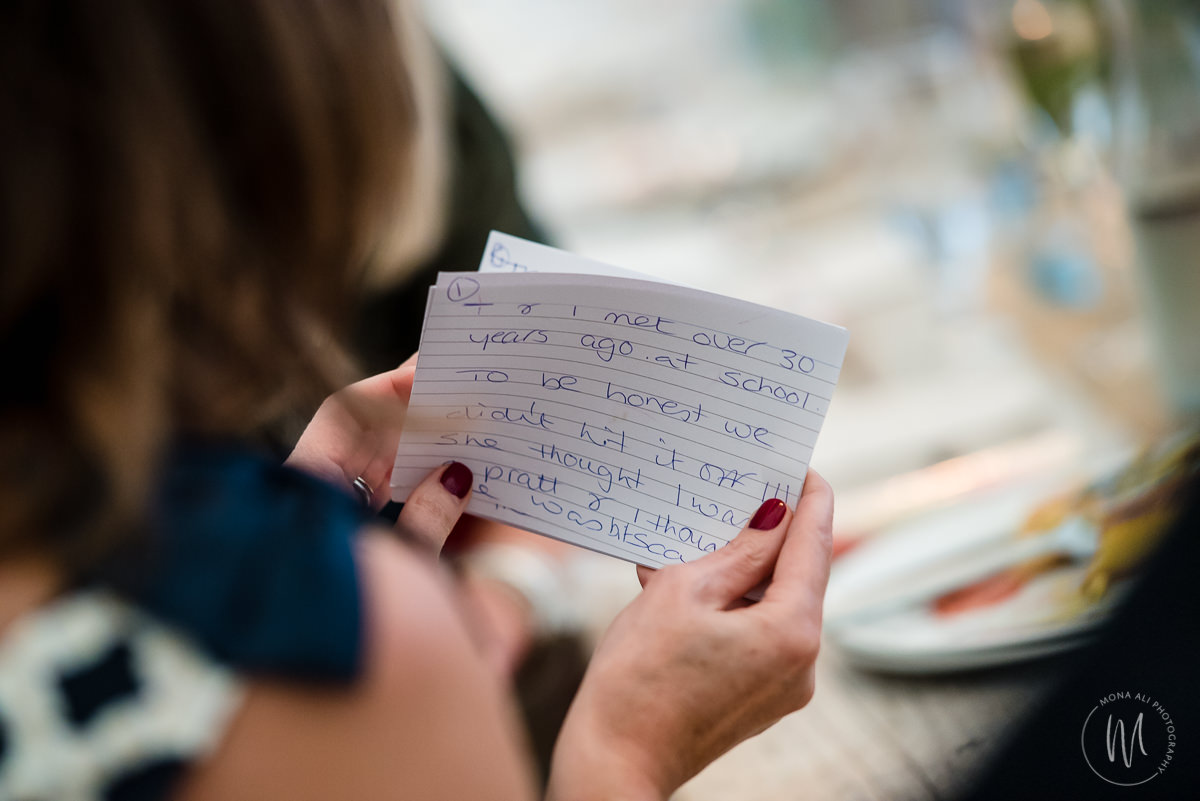 ①
T & I met over 30
years ago. at school.
To be honest we
didn't hit it off!!!
she thought I was
pratt & I thou
was bit sca
MONA ALI PHOTOGRAPHY
M